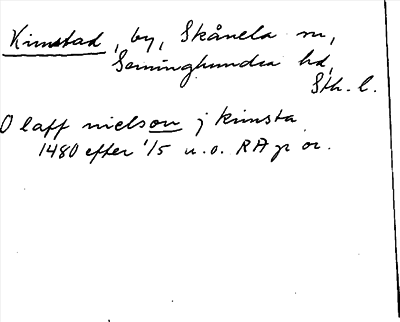 Kimstad, by, Skånela sn,
Seminghundra hd,
Sth. l.
Olaff nielson j kimsta
1480 efter 1/5 u.o. RAp or.